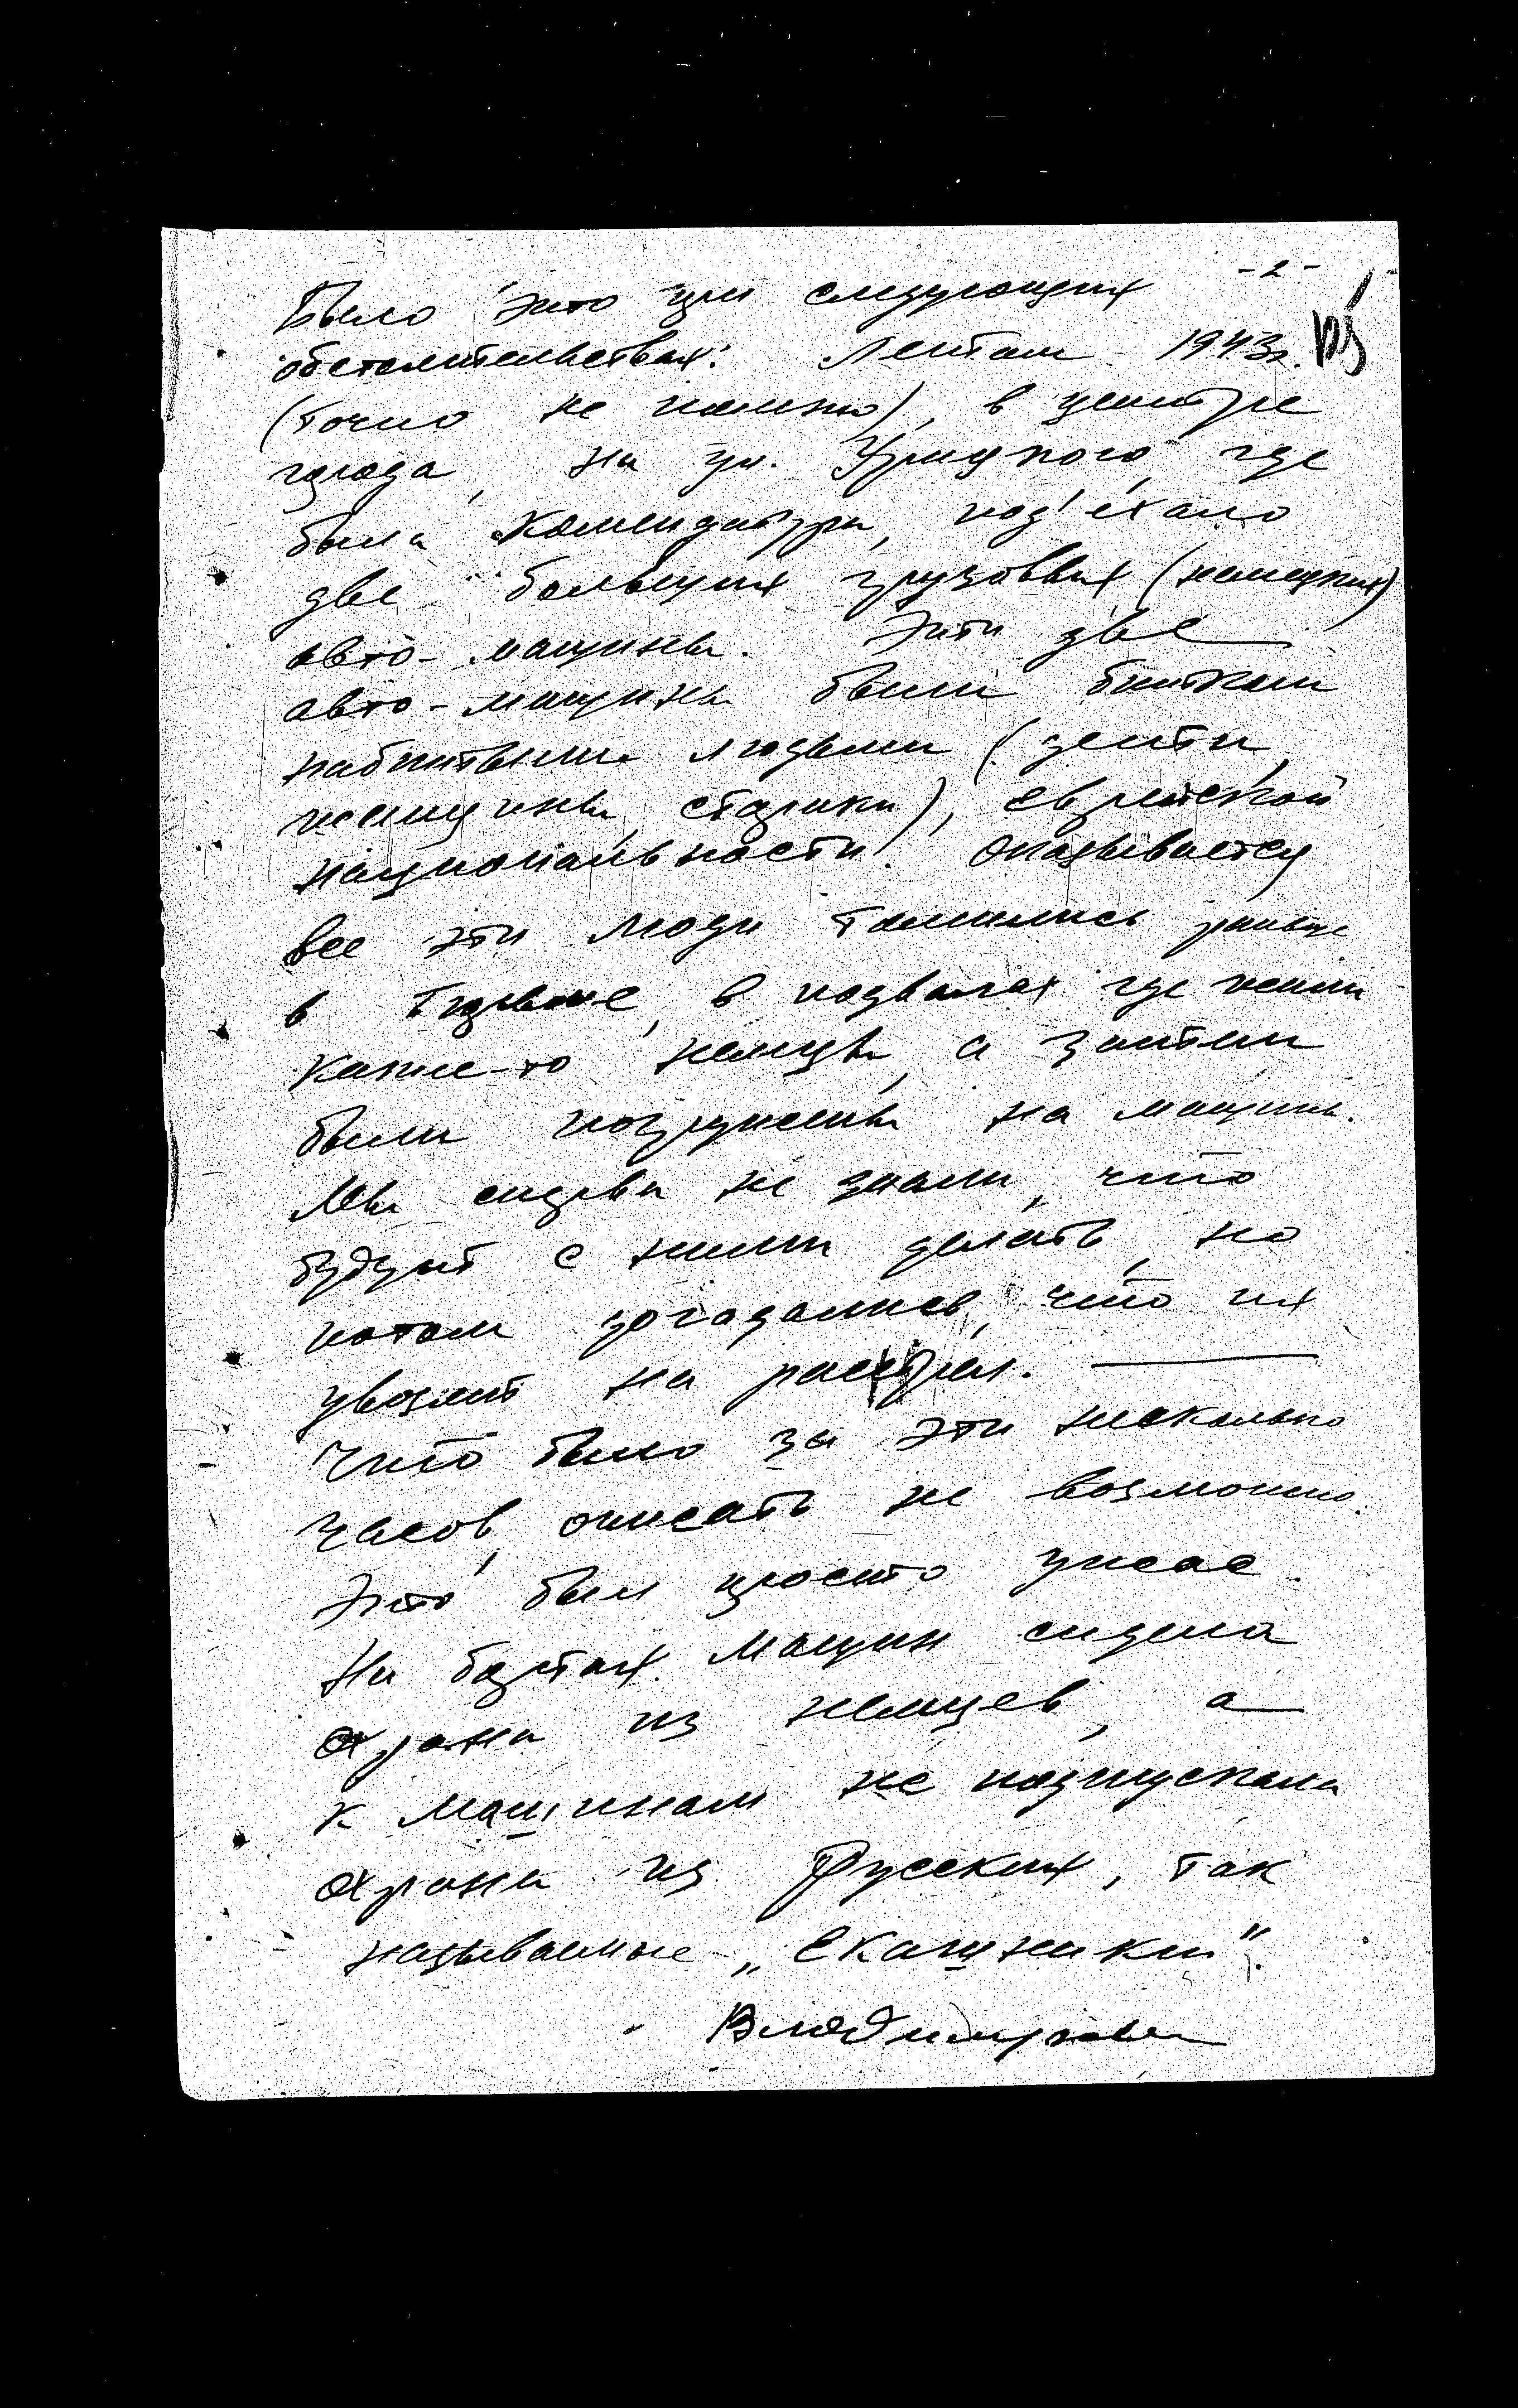 - 2 -
Было это при следующих
обстоятельствах: Летом 1943г.
(точно не помню), в центре
города, на ул. Урицкого, где
была комендатура, под'ехало
две больших грузовых (немецких)
авто-машины. Эти две
авто-машины были битком
набитыми людьми (дети,
женщины, старики), еврейской
национальности. Оказывается
все эти люди томились раньше
в тюрьме, в подвалах где жили
какие-то немцы, а затем
были погружены на машины.
Мы сперва не знали, что
будут с ними делать, но
потом догадались, что их
увозят на расстрел.
Что было за эти несколько
часов, описать не возможно.
Это был просто ужас.
На бортах машин сидела
охрана из немцев, а
к машинам не подпускала
охрана из Русских, так
называемые „Екашники".
Владимирова